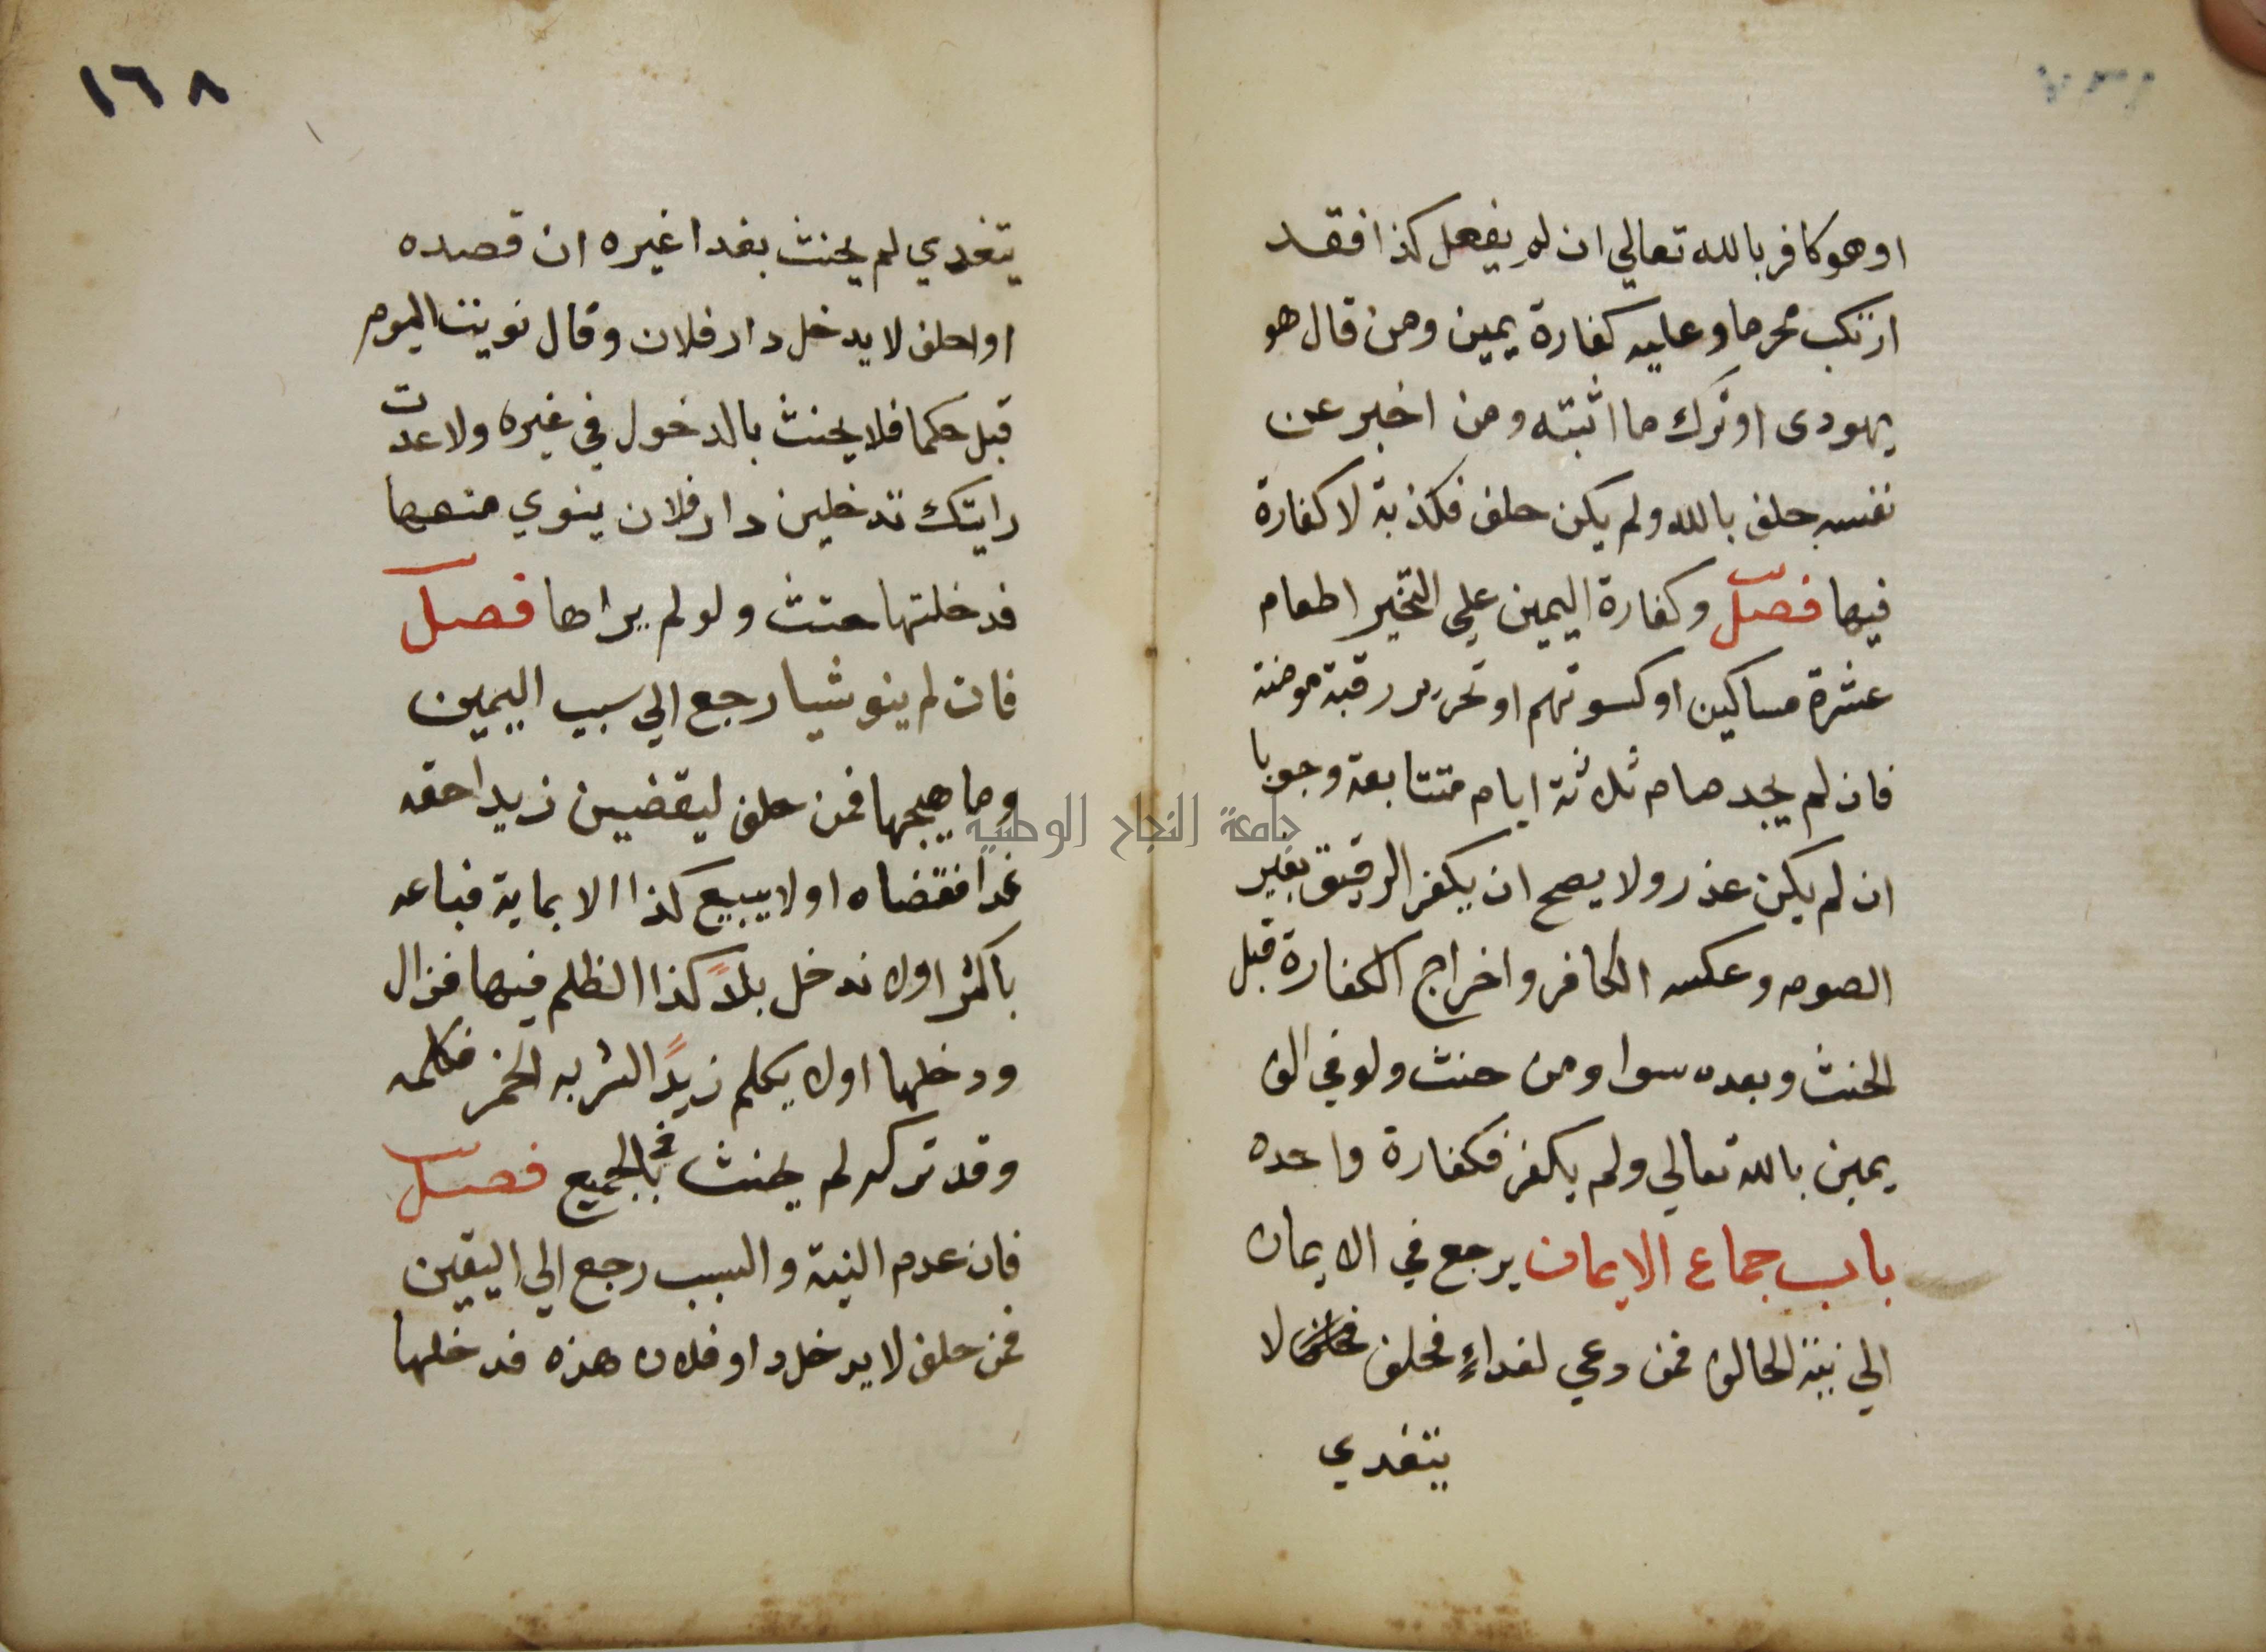 او هو كافر بالله تعالي ان لم يفعل كذا فقد
ارتكب محرما وعليه كفارة يمين ومن قال هو
يهودى او ترك ما اثبته ومن اخبر عن
نفسه حلف بالله ولم يكن حلف فكذبة لا كفارة
فيها فصل وكفارة اليمين علي التخير اطعام
عشرة مساكين او كسوتهم او تحرير رقبة مومنة
فان لم يجد صام ثلاثة ايام متتابعة وجوبا
ان لم يكن عذر ولا يصح ان يكفر الرقيق بغير
الصوم وعكسه الكافر واخراج الكفارة قبل
الحنث وبعده سوا ومن حنث ولو في الف
يمين بالله تعالي ولم يكفر فكفارة واحده
باب جماع الايمان يرجع في الايمان
الي نية الحالف فمن دعي لغداءٍ فحلف لا
يتغدي
١٦٨
يتغدي لم يحنث بغدا غيره ان قصده
او احلف لا يدخل دار فلان وقال نويت اليوم
قبل حكما فلا يحنث بالدخول في غيره ولا عدت
رايتك تدخلين دار فلان ينوي منعها
فدخلتها حنث ولو لم يراها فصل
فان لم ينو شيا رجع الي سبب اليمين
وما هيجها فمن حلف ليقضين زيدا حقه
غدا فقضاه او لا يبيع كذا الا بماية فباعه
باكثر اولا ندخل بلدً كذا الظلم فيها فزال
ودخلها اولا يكلم زيدً الشربه الخمر فكلمه
وقد تركه لم يحنث في الجميع فصل
فان عدم النية والسبب رجع الي اليقين
فمن حلف لا يدخل دار فلان هذه فدخلها
جامعة النجاح الوطنية